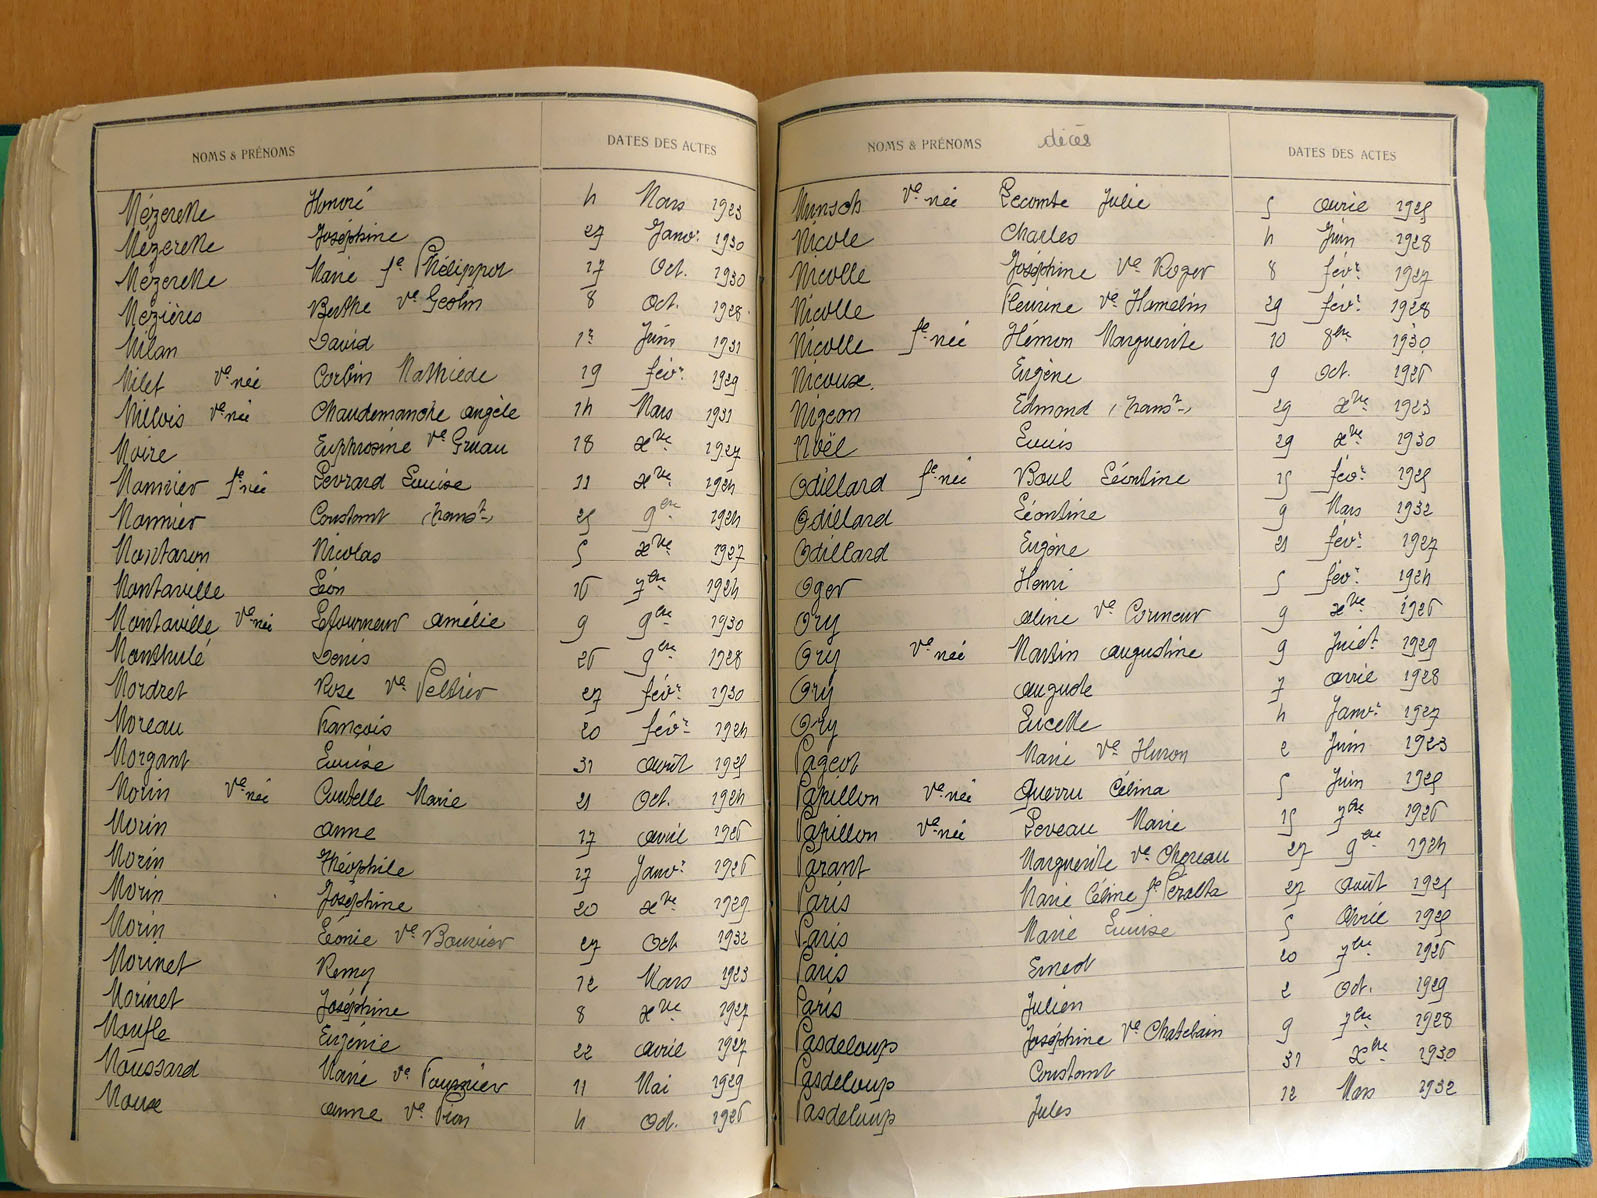 NOMS & PRÉNOMS DATES DES ACTES
Mézerette Honoré 4 Mars 1923
Mézerette Joséphine 27 Janvr. 1930
Mézerette Marie fe Phélippot 17 Oct. 1930
Mézières Berthe Ve Geslin 8 Oct. 1928
Milan David 1er Juin 1931
Milet Ve née Corbin Mathilde 19 févr. 1929
Millois Ve née Chaudemanche Angèle 14 Mars 1931
Moire Euphrosine Ve Gruau 18 xbre 1927
Monnier fe née Levrard Louise 11 xbre 1924
Monnier Constant (transon) 25 9bre 1924
Montaron Nicolas 5 xbre 1927
Montaville Léon 16 7bre 1924
Montaville Ve née Letourneur Amélie 9 9bre 1930
Monthulé Denis 26 9bre 1928
Mordret Rose Ve Peltier 27 févr. 1930
Moreau François 20 févr. 1924
Morgant Louise 31 Août 1925
Morin Ve née Coutelle Marie 21 Oct. 1924
Morin Anne 17 Avril 1926
Morin Théophile 27 Janvr. 1926
Morin Joséphine 20 xbre 1929
Morin Léonie Ve Bouvier 27 Oct 1932
Morinet Remy 12 Mars 1923
Morinet Joséphine 8 xbre 1927
Moufle Eugénie 22 Avril 1927
Moussard Marie Ve Fournier 11 Mai 1929
Moux Anne Ve Pion 4 Oct. 1926
NOMS & PRÉNOMS décès DATES DES ACTES
Munsch Ve née Lecomte Julie 5 Avril 1925
Nicole Charles 4 Juin 1928
Nicolle Joséphine Ve Roger 8 févr. 1927
Nicolle Fleurine Ve Hamelin 29 févr. 1928
Nicolle fe née Hémon Marguerite 10 8bre 1930
Nicoux. Eugène 9 Oct. 1926
Nigeon Edmond (transon) 29 xbre 1923
Noël Louis 29 xbre 1930
Odillard fe née Boul Léontine 15 févr. 1925
Odillard Léontine 9 Mars 1932
Odillard Eugène 21 févr. 1927
Oger Henri 5 févr. 1924
Ory Aline Ve Cormeur 9 xbre 1926
Ory Ve née Martin Augustine 9 Juillet 1929
Ory Auguste 7 Avril 1928
Ory Lucette 4 Janvr. 1927
Pageot Marie Ve Huron 2 Juin 1923
Papillon Ve née Querru Célina 5 Juin 1925
Papillon Ve née Leveau Marie 15 7bre 1926
Parant Marguerite Ve Choreau 27 9bre 1924
Paris Marie Céline fe Peralta 27 Août 1925
Paris Marie Louise 5 Avril 1925
Paris Ernest 20 7bre 1926
Paris Julien 2 Oct. 1929
Pasdeloup Joséphine Ve Chatelain 9 7bre 1928
Pasdeloup Constant 31 xbre 1930
Pasdeloup Jules 12 Mars 1932